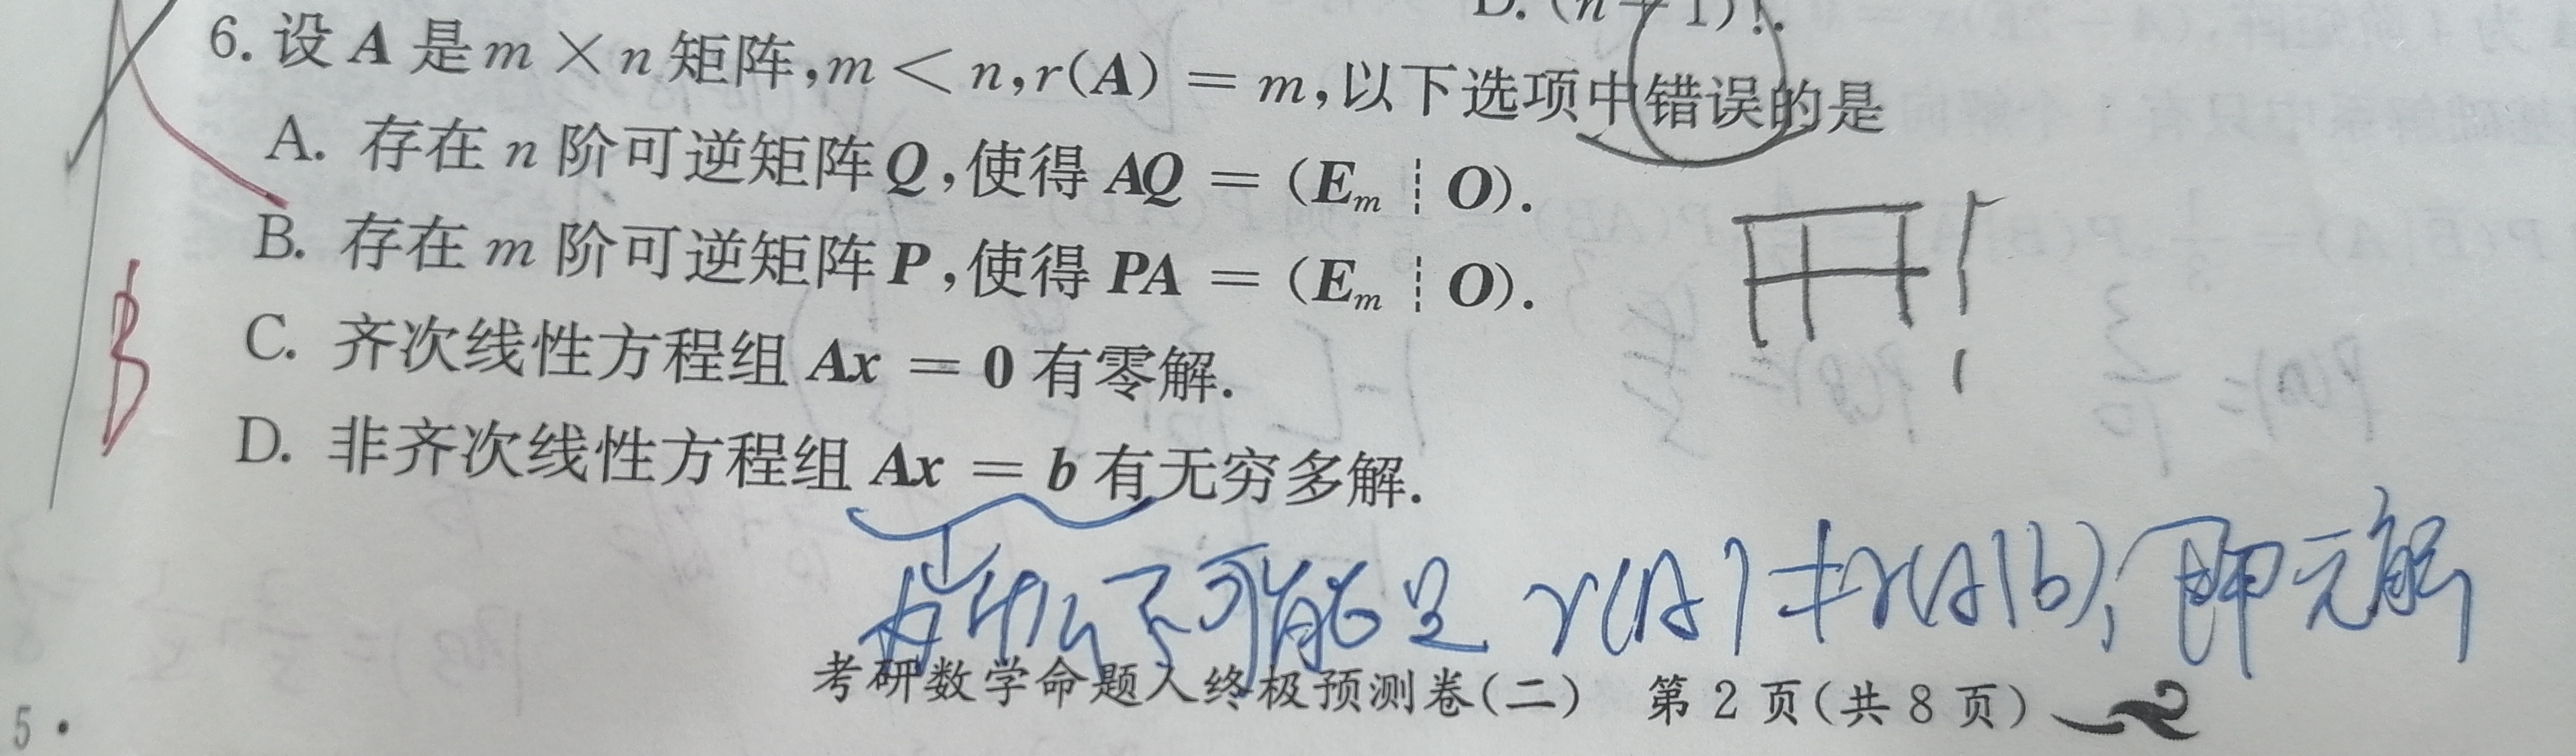 D. (n-1)!.
6. 设 A 是 m × n 矩阵,m < n,r(A) = m,以下选项中错误的是
A. 存在 n 阶可逆矩阵 Q,使得 AQ = (Eₘ ┊ O).
B. 存在 m 阶可逆矩阵 P,使得 PA = (Eₘ ┊ O).
C. 齐次线性方程组 Ax = 0 有零解.
B
D. 非齐次线性方程组 Ax = b 有无穷多解.
为什么不可能是 r(A)≠r(A|b), 即无解
考研数学命题人终极预测卷(二) 第 2 页(共 8 页)
5 ·